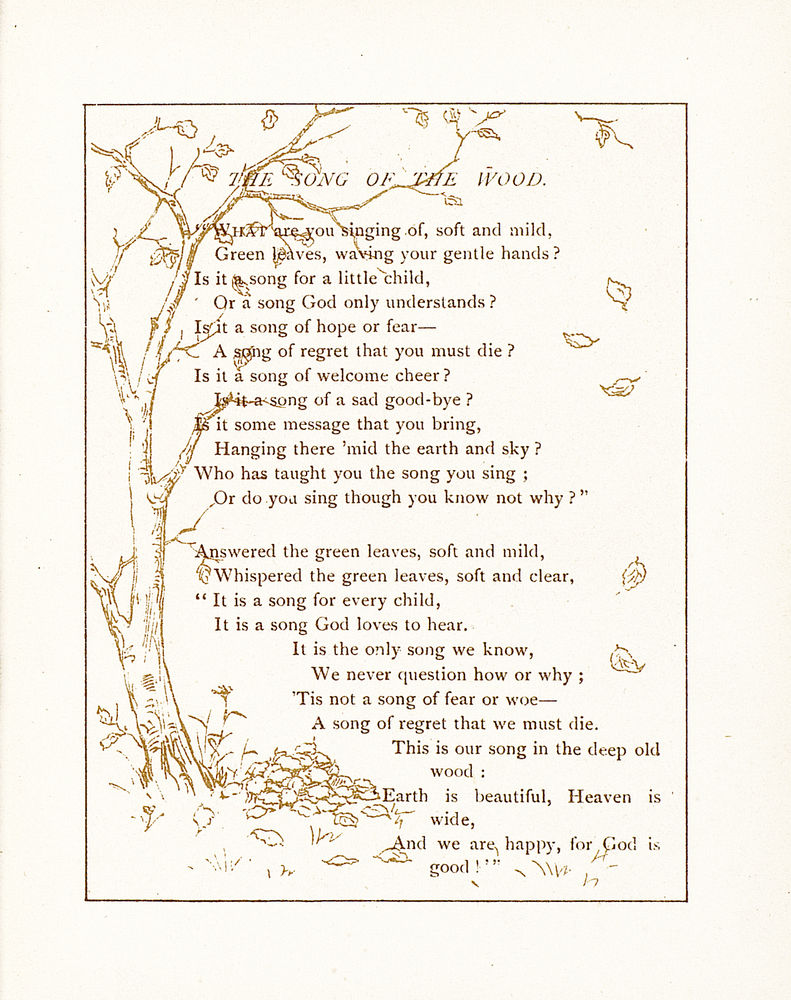 THE SONG OF THE WOOD.
“WHAT are you singing of, soft and mild,
Green leaves, waving your gentle hands?
Is it a song for a little child,
Or a song God only understands?
Is it a song of hope or fear—
A song of regret that you must die?
Is it a song of welcome cheer?
Is it a song of a sad good-bye?
Is it some message that you bring,
Hanging there ’mid the earth and sky?
Who has taught you the song you sing;
Or do you sing though you know not why?”
Answered the green leaves, soft and mild,
Whispered the green leaves, soft and clear,
“It is a song for every child,
It is a song God loves to hear.
It is the only song we know,
We never question how or why;
’Tis not a song of fear or woe—
A song of regret that we must die.
This is our song in the deep old
wood:
‘Earth is beautiful, Heaven is
wide,
And we are happy, for God is
good!’”